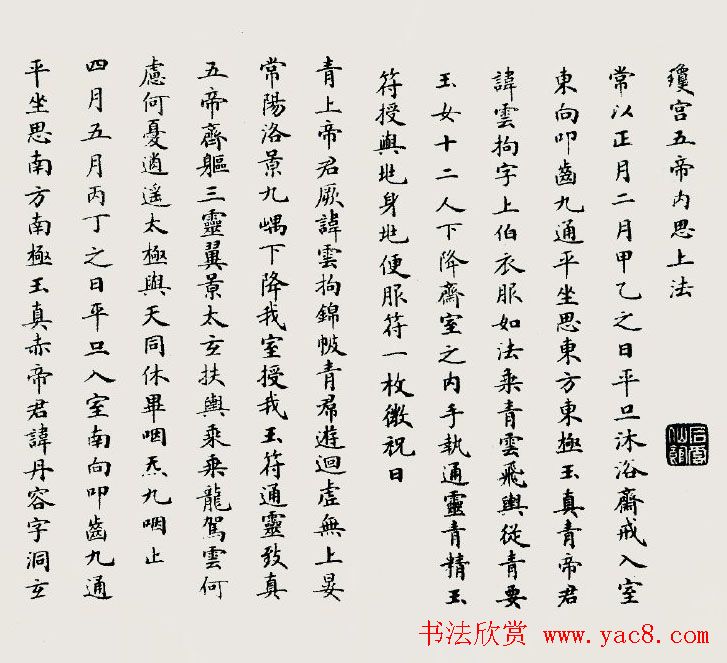 瓊宫五帝内思上法
常以正月二月甲乙之日平旦沐浴齋戒入室
東向叩齒九通平坐思東方東極玉真青帝君
諱雲拘字上伯衣服如法乘青雲飛輿從青要
玉女十二人下降齋室之内手執通靈青精玉
符授與地身地便服符一枚微祝曰
青上帝君厥諱雲拘錦帔青帬遊迴虛無上晏
常陽洛景九嵎下降我室授我玉符通靈致真
五帝齊軀三靈翼景太玄扶輿乘乘龍駕雲何
慮何憂逍遙太極與天同休畢咽炁九咽止
四月五月丙丁之日平旦入室南向叩齒九通
平坐思南方南極玉真赤帝君諱丹容字洞玄
书法欣赏 www.yac8.com